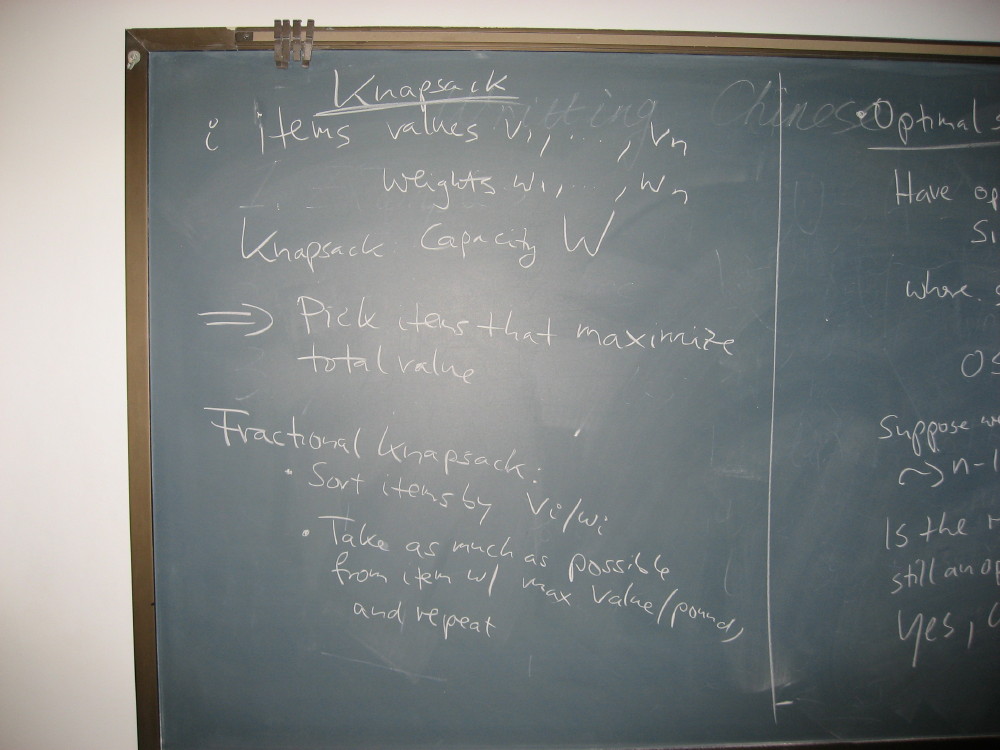 Knapsack
i items values v1, ..., vn
weights w1, ..., wn
Knapsack: Capacity W
=> Pick items that maximize
total value
Fractional Knapsack:
• Sort items by vi/wi
• Take as much as possible
from item w/ max value/pound,
and repeat
Chinese
• Optimal
Have
where
Suppose
n-1
Is the
still an
Yes,